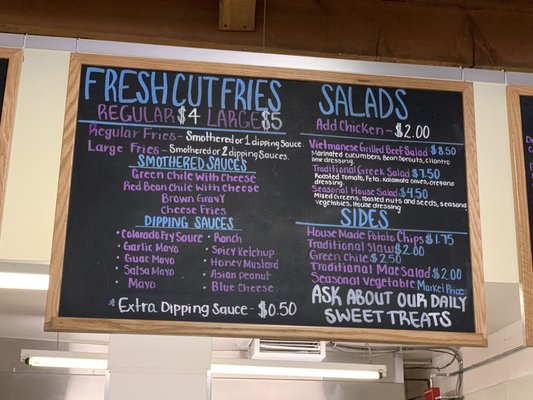 FRESH CUT FRIES
REGULAR $4 LARGE $5
Regular Fries - Smothered or 1 dipping Sauce.
Large Fries - Smothered or 2 dipping Sauces.
SMOTHERED SAUCES
Green Chile with Cheese
Red Bean Chile with Cheese
Brown Gravy
Cheese Fries
DIPPING SAUCES
• Colorado Fry Sauce
• Garlic Mayo
• Guac Mayo
• Salsa Mayo
• Mayo
• Ranch
• Spicy Ketchup
• Honey Mustard
• Asian Peanut
• Blue Cheese
* Extra Dipping Sauce - $0.50
SALADS
Add Chicken - $2.00
Vietnamese Grilled Beef Salad $8.50
Marinated cucumbers, Bean Sprouts, cilantro
lime dressing.
Traditional Greek Salad $7.50
Roasted Tomato, Feta, Kalamata olives, oregano
dressing.
Seasonal House Salad $4.50
Mixed Greens, roasted nuts and seeds, seasonal
vegetables, House dressing
SIDES
House Made Potato Chips $1.75
Traditional Slaw $2.00
Green Chile $2.50
Traditional Mac Salad $2.00
Seasonal Vegetable Market Price
ASK ABOUT OUR DAILY
SWEET TREATS